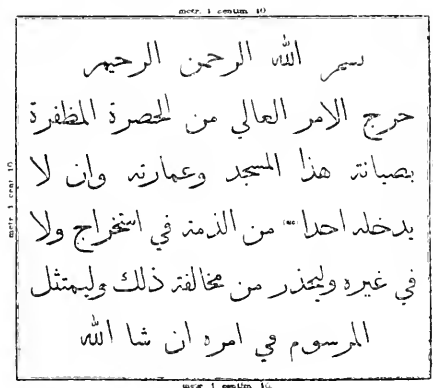 metr. 1 centim 10
بسم الله الرحمن الرحيم
خرج الامر العالي من الحضرة المظفرة
بصيانة هذا المسجد وعمارته وان لا
يدخله احدا (sic) من الذمة في استخراج ولا
في غيره وليحذر من مخالفة ذلك وليمتثل
المرسوم في امره ان شا الله
metr 1 cent 10
metr 1 centim 10